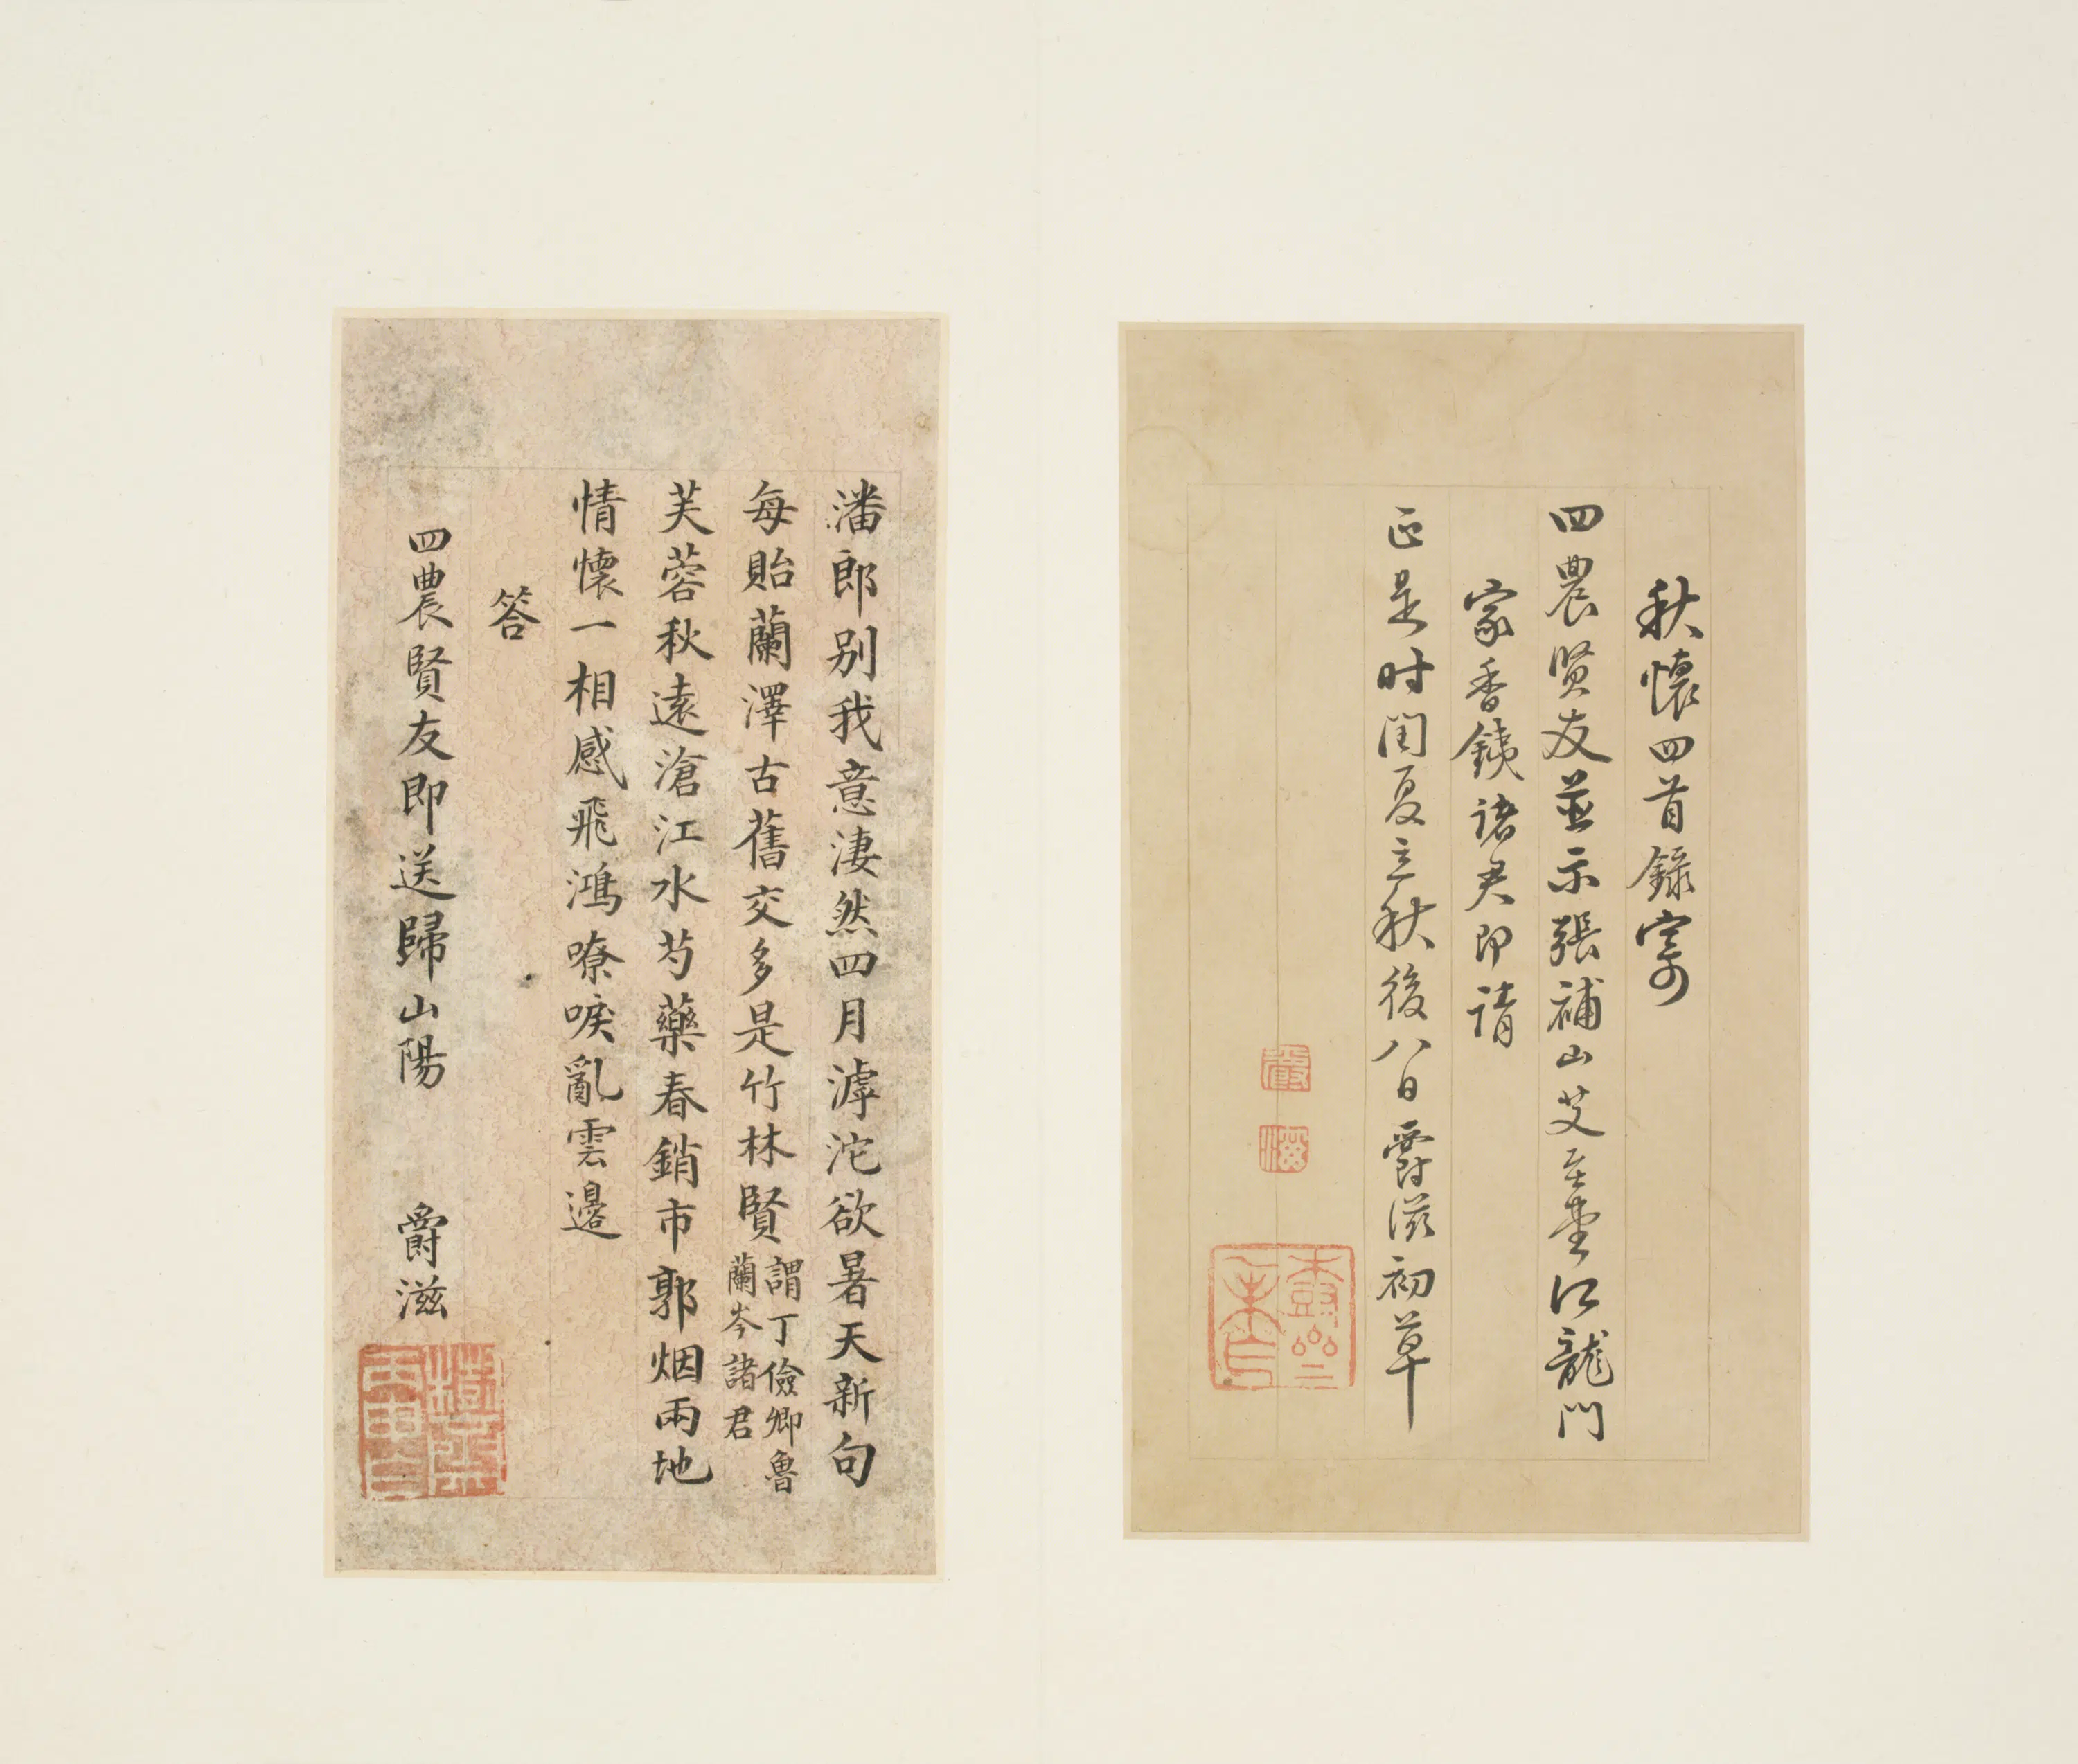 秋懷四首錄寄
四農賢友並示張補山艾至堂江龍門
家香鐵諸君即請
正是时闰夏立秋後八日爵滋初草
潘郎别我意淒然四月滹沱欲暑天新句
每貽蘭澤古舊交多是竹林賢謂丁儉卿魯蘭岑諸君
芙蓉秋遠滄江水芍藥春銷市郭烟兩地
情懷一相感飛鴻嘹唳亂雲邊
答
四農賢友即送歸山陽 爵滋